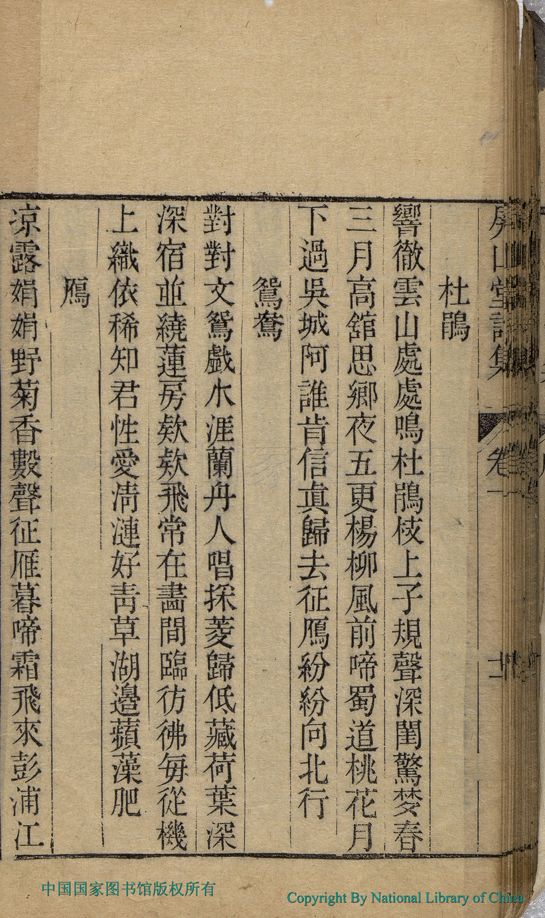 屏山堂詩集 卷一 十一
杜鵑
響徹雲山處處鳴杜鵑枝上子規聲深閨驚夢春
三月高舘思鄉夜五更楊柳風前啼蜀道桃花月
下過吳城阿誰肯信眞歸去征鴈紛紛向北行
鴛鴦
對對文鴛戲水涯蘭舟人唱採菱歸低藏荷葉深
深宿並繞蓮房欸欸飛常在畵間臨彷彿每從機
上織依稀知君性愛淸漣好靑草湖邊蘋藻肥
鴈
凉露娟娟野菊香數聲征雁暮啼霜飛來彭浦江
中国国家图书馆版权所有
Copyright By National Library of China